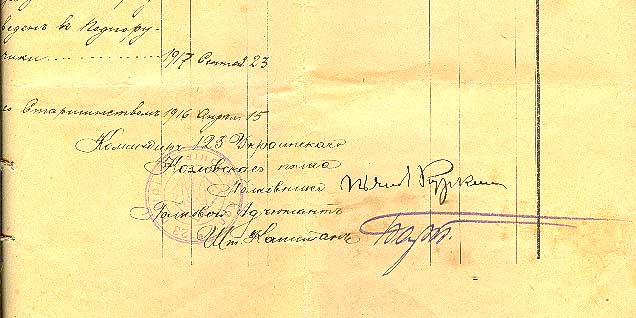 веденъ въ Подпору-
чики ........ 1917 Сентяб. 23
со Старшинствомъ 1916 Апрѣл. 15
Командиръ 123 Украинскаго
Козловскаго полка
Полковникъ
Полковой Адъютантъ
Шт. Капитанъ